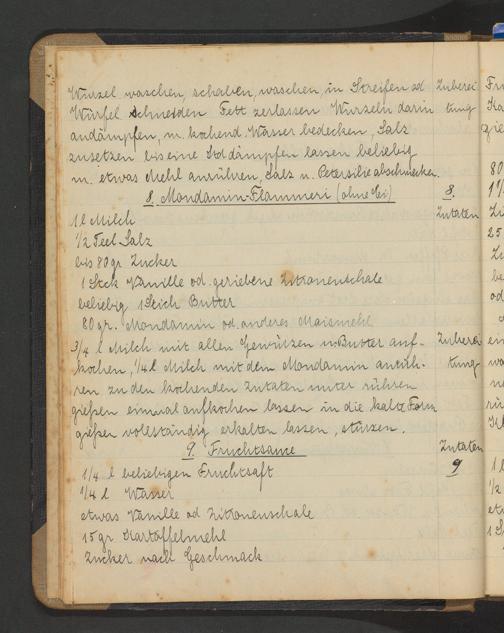 Wurzel waschen, schaben, waschen, in Streifen od Zuberei
Würfel schneiden Fett zerlassen Wurzeln darin tung
andämpfen, m. kochend Wasser bedecken, Salz
zusetzen bis eine Std dämpfen lassen beliebig
m. etwas Mehl anrühren, Salz u. Petersilie abschmecken.
8. Mondamin-Flammeri (ohne Ei) 8.
1 l Milch Zutaten
1/2 Teel. Salz
bis 80 gr Zucker
1 Stck Vanille od. geriebene Zitronenschale
beliebig 1 Stich Butter
80 gr. Mondamin od. anderes Maismehl
3/4 l Milch mit allen Gewürzen u Butter auf- Zuberei
kochen, 1/4 l Milch mit dem Mondamin anrüh- tung
ren zu den kochenden Zutaten unter rühren
gießen einmal aufkochen lassen in die kalte Form
gießen vollständig erkalten lassen, stürzen.
9. Fruchtsauce Zutaten
1/4 l beliebigen Fruchtsaft 9
1/4 l Wasser
etwas Vanille od Zitronenschale
15 gr Kartoffelmehl
Zucker nach Geschmack